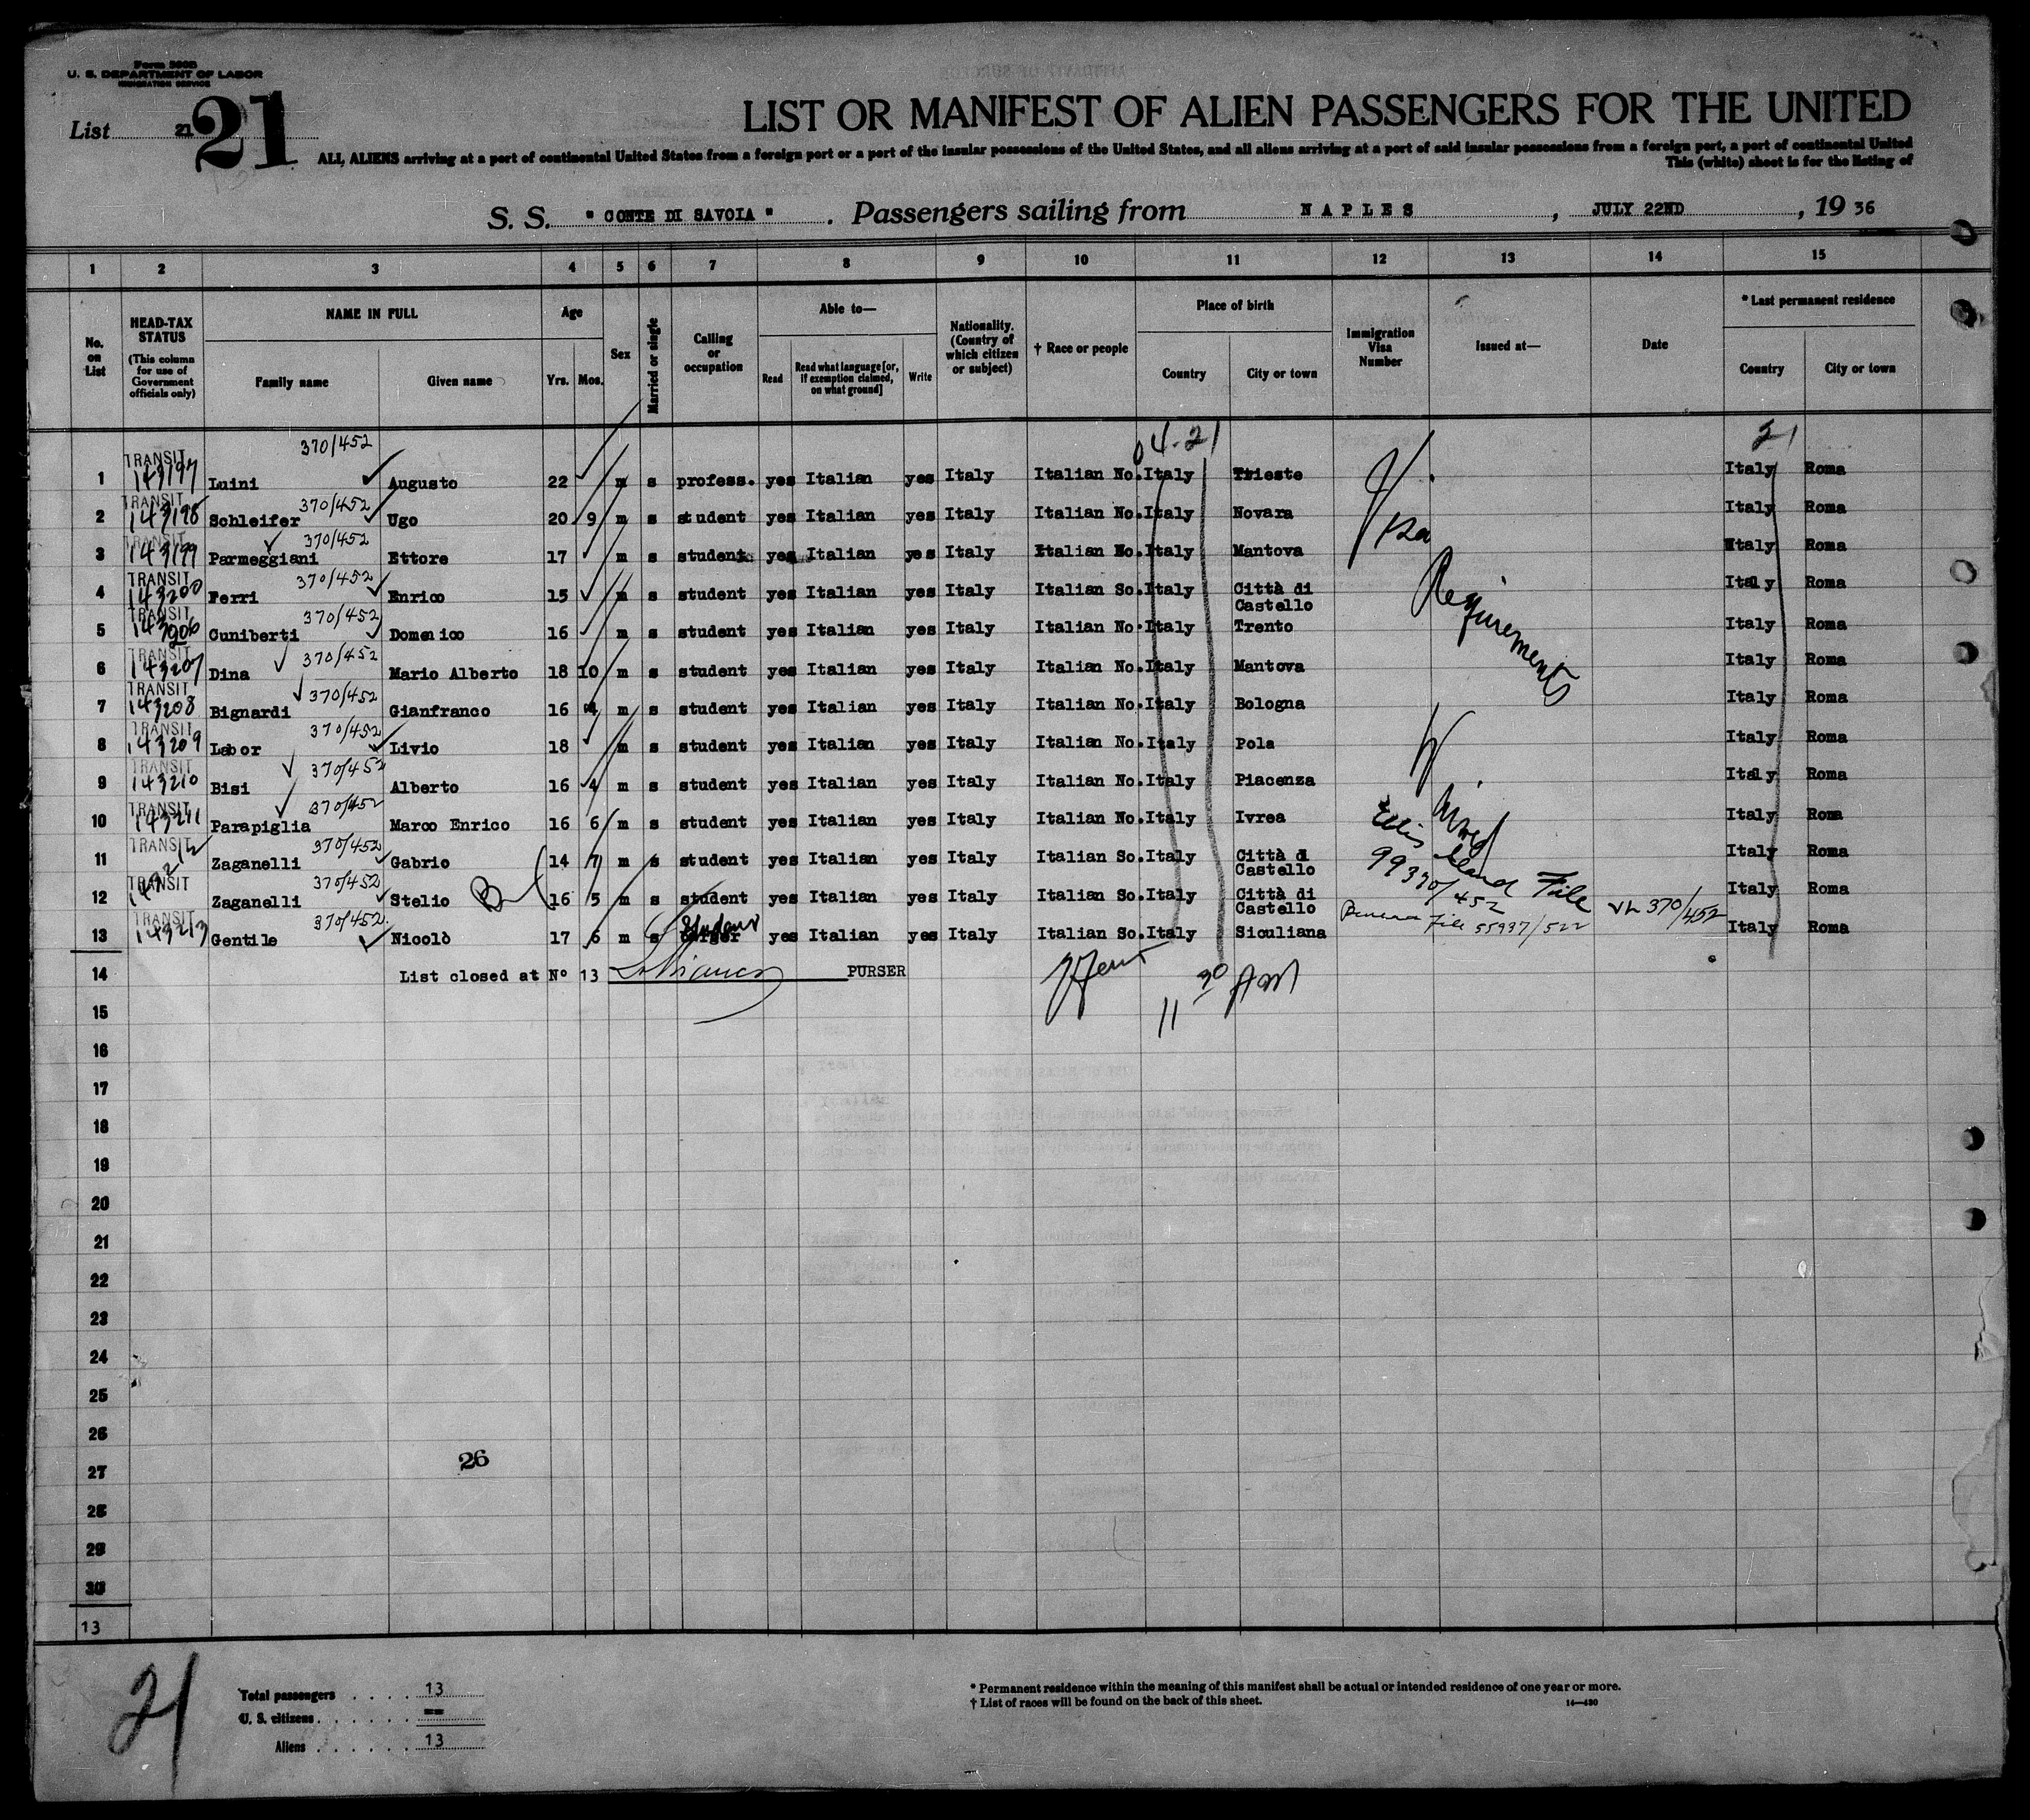 Form 500B
U. S. DEPARTMENT OF LABOR
IMMIGRATION SERVICE
List 21 21
LIST OR MANIFEST OF ALIEN PASSENGERS FOR THE UNITED
ALL ALIENS arriving at a port of continental United States from a foreign port or a port of the insular possessions of the United States, and all aliens arriving at a port of said insular possessions from a foreign port, a port of continental United
This (white) sheet is for the listing of
S. S. " CONTE DI SAVOIA " . Passengers sailing from NAPLES , JULY 22ND , 19 36
1 2 3 4 5 6 7 8 9 10 11 12 13 14 15
No. on List
HEAD-TAX STATUS (This column for use of Government officials only)
NAME IN FULL Family name Given name
Age Yrs. Mos.
Sex
Married or single
Calling or occupation
Able to— Read Read what language [or, if exemption claimed, on what ground] Write
Nationality. (Country of which citizen or subject)
† Race or people
Place of birth Country City or town
Immigration Visa Number
Issued at—
Date
* Last permanent residence Country City or town
370/452 04-21 21
1 TRANSIT 143197 Luini Augusto 22 m s profess. yes Italian yes Italy Italian No. Italy Trieste Italy Roma
2 TRANSIT 143198 Schleifer 370/452 Ugo 20 9 m s student yes Italian yes Italy Italian No. Italy Novara Italy Roma
3 TRANSIT 143199 Parmeggiani 370/452 Ettore 17 m s student yes Italian yes Italy Italian No. Italy Mantova Italy Roma
4 TRANSIT 143200 Ferri 370/452 Enrico 15 m s student yes Italian yes Italy Italian So. Italy Città di Castello Italy Roma
5 TRANSIT 143206 Cuniberti 370/452 Domenico 16 m s student yes Italian yes Italy Italian No. Italy Trento Italy Roma
6 TRANSIT 143207 Dina 370/452 Mario Alberto 18 10 m s student yes Italian yes Italy Italian No. Italy Mantova Italy Roma
7 TRANSIT 143208 Bignardi 370/452 Gianfranco 16 4 m s student yes Italian yes Italy Italian No. Italy Bologna Italy Roma
8 TRANSIT 143209 Labor 370/452 Livio 18 m s student yes Italian yes Italy Italian No. Italy Pola Italy Roma
9 TRANSIT 143210 Bisi 370/452 Alberto 16 4 m s student yes Italian yes Italy Italian No. Italy Piacenza Italy Roma
10 TRANSIT 143211 Parapiglia 370/452 Marco Enrico 16 6 m s student yes Italian yes Italy Italian No. Italy Ivrea Italy Roma
11 TRANSIT 143212 Zaganelli 370/452 Gabrio 14 7 m s student yes Italian yes Italy Italian So. Italy Città d Castello Italy Roma
12 TRANSIT Zaganelli 370/452 Stelio 16 5 m s student yes Italian yes Italy Italian So. Italy Città di Castello Italy Roma
13 TRANSIT 143213 Gentile 370/452 Nicolò 17 6 m s Student yes Italian yes Italy Italian So. Italy Siculiana Italy Roma
Visa Requirements
Waived
Ellis Island File
99370/452
File 55937/522
370/452
14 List closed at No 13 PURSER
11 30 AM
15
16
17
18
19
20
21
22
23
24
25
26
27
28
29
30
26
13
21
Total passengers . . . . 13
U. S. citizens . . . . . . ==
Aliens . . . . . . 13
* Permanent residence within the meaning of this manifest shall be actual or intended residence of one year or more.
† List of races will be found on the back of this sheet. 14—430